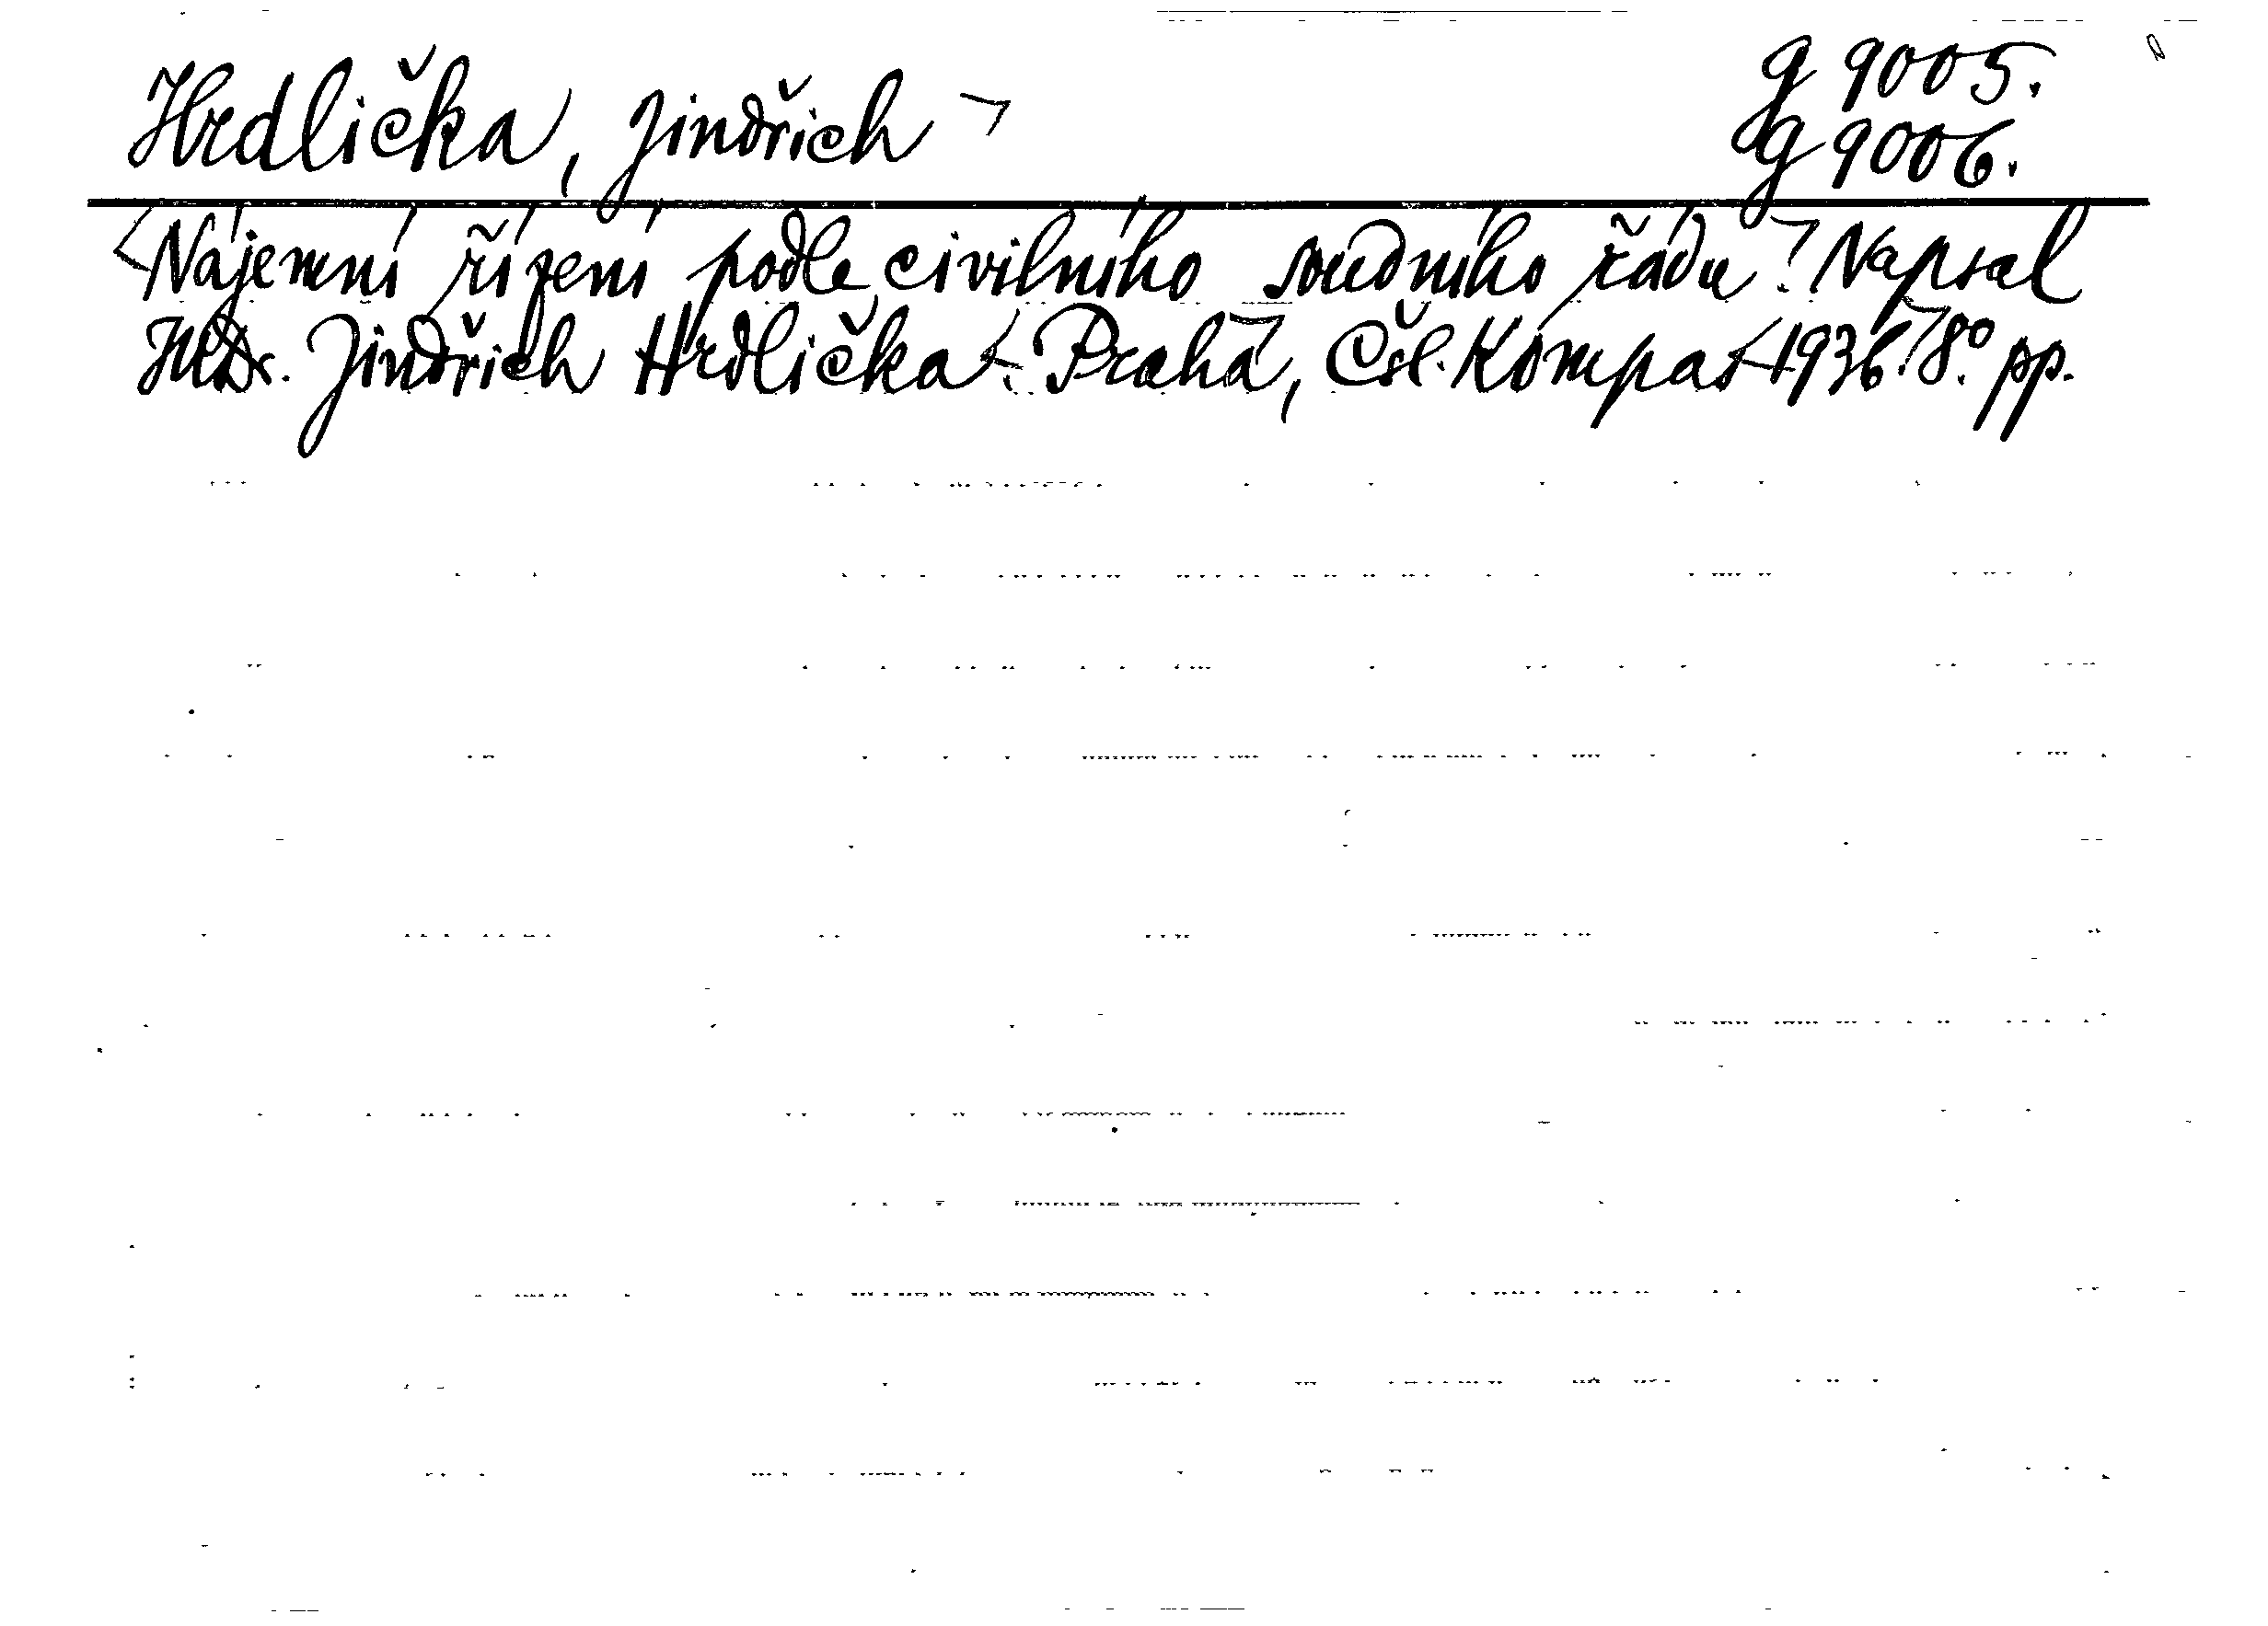 Hrdlička, Jindřich
g 9005.
g 9006.
Nájemní řízení podle civilního soudního řádu. Napsal
JUDr. Jindřich Hrdlička. Praha, Čsl. Kompas 1936. 8° pp.